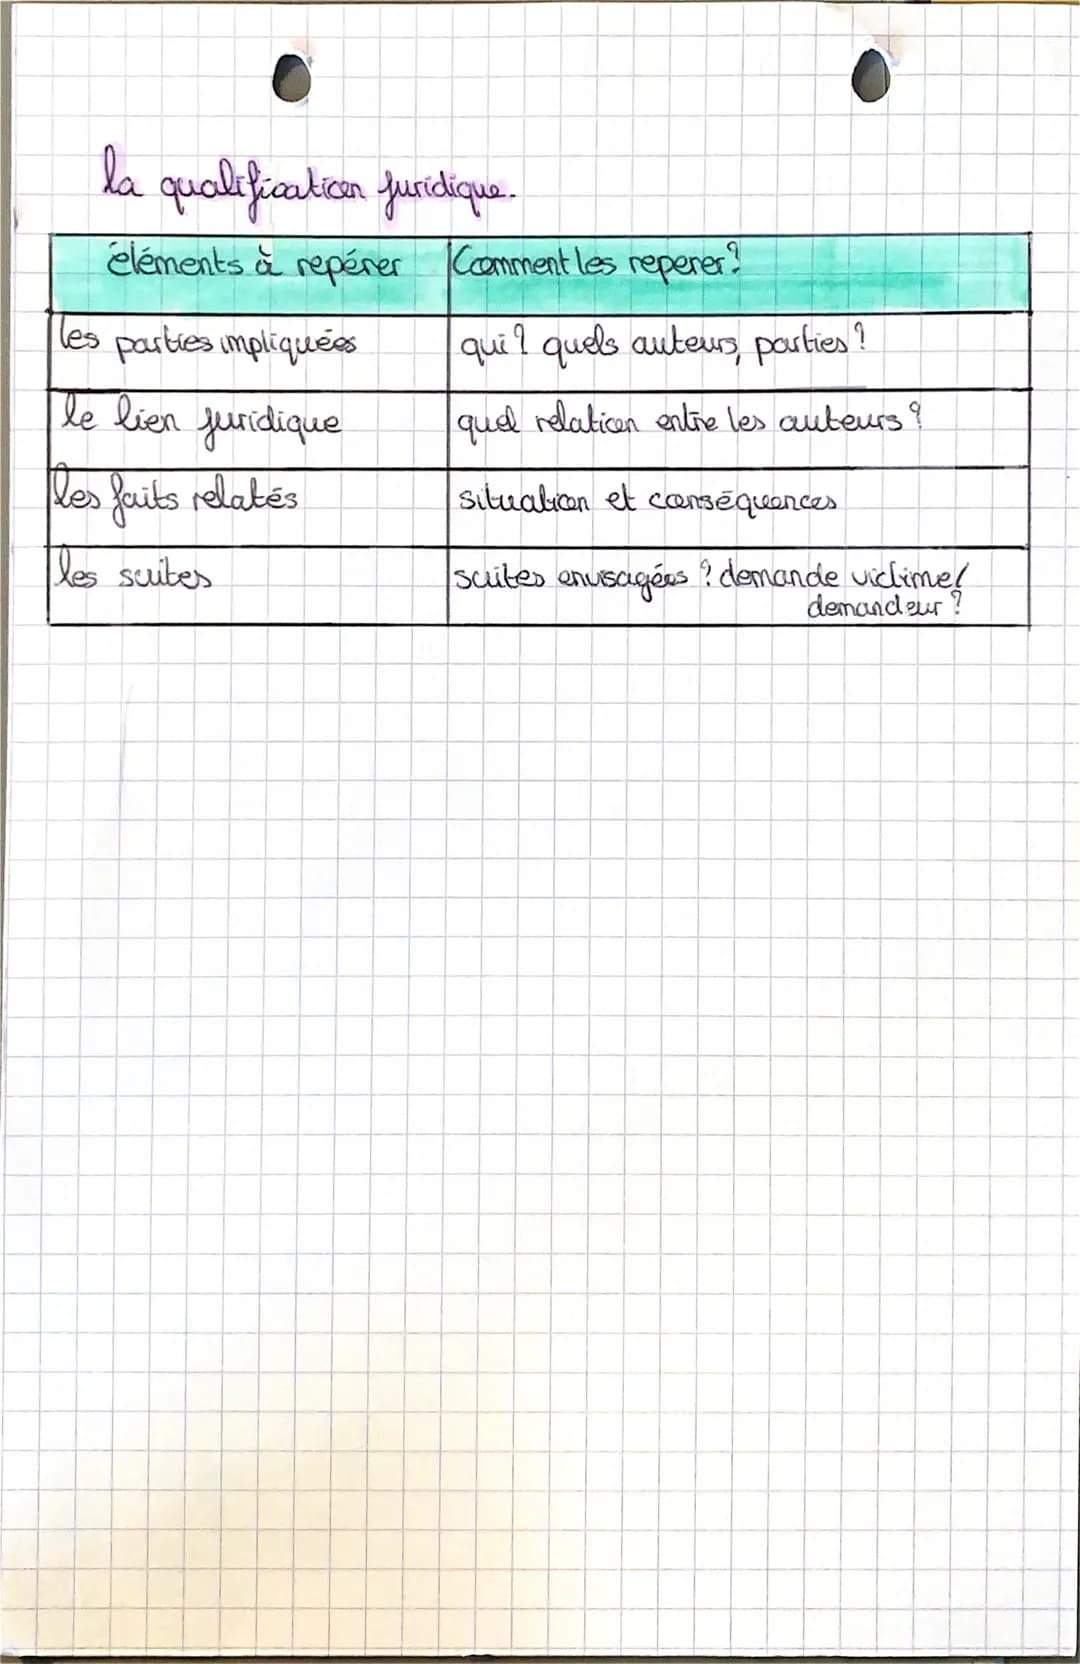 la qualification juridique.
éléments à repérer Comment les reperer?
les parties impliquées qui? quels auteurs, parties?
le lien juridique quel relation entre les auteurs?
les faits relatés situation et conséquences
les suites suites envisagées? demande victime/
demandeur?